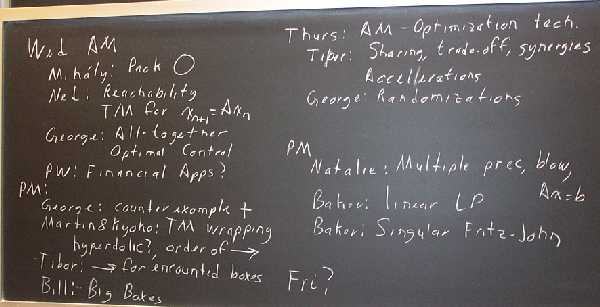 Wed AM
Mihály: Pack O
Ned: Reachability
TM for x_{n+1} = Ax_n
George: All-together
Optimal Control
PW: Financial Apps?
PM:
George: counter example +
Martin & Kyoko: TM wrapping
hyperbolic?, order of →
Tibor: → for encounted boxes
Bill: Big Boxes
Thurs: AM - Optimization tech.
Tibor: Sharing, trade-off, synergies
Accellerations
George: Randomizations
PM
Natalie: Multiple prec, blow,
Ax=b
Baker: linear LP
Baker: Singular Fritz-John
Fri?